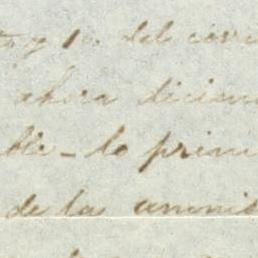 y 1o. del corri
ahora dicien
ble - lo prim
de la amnis